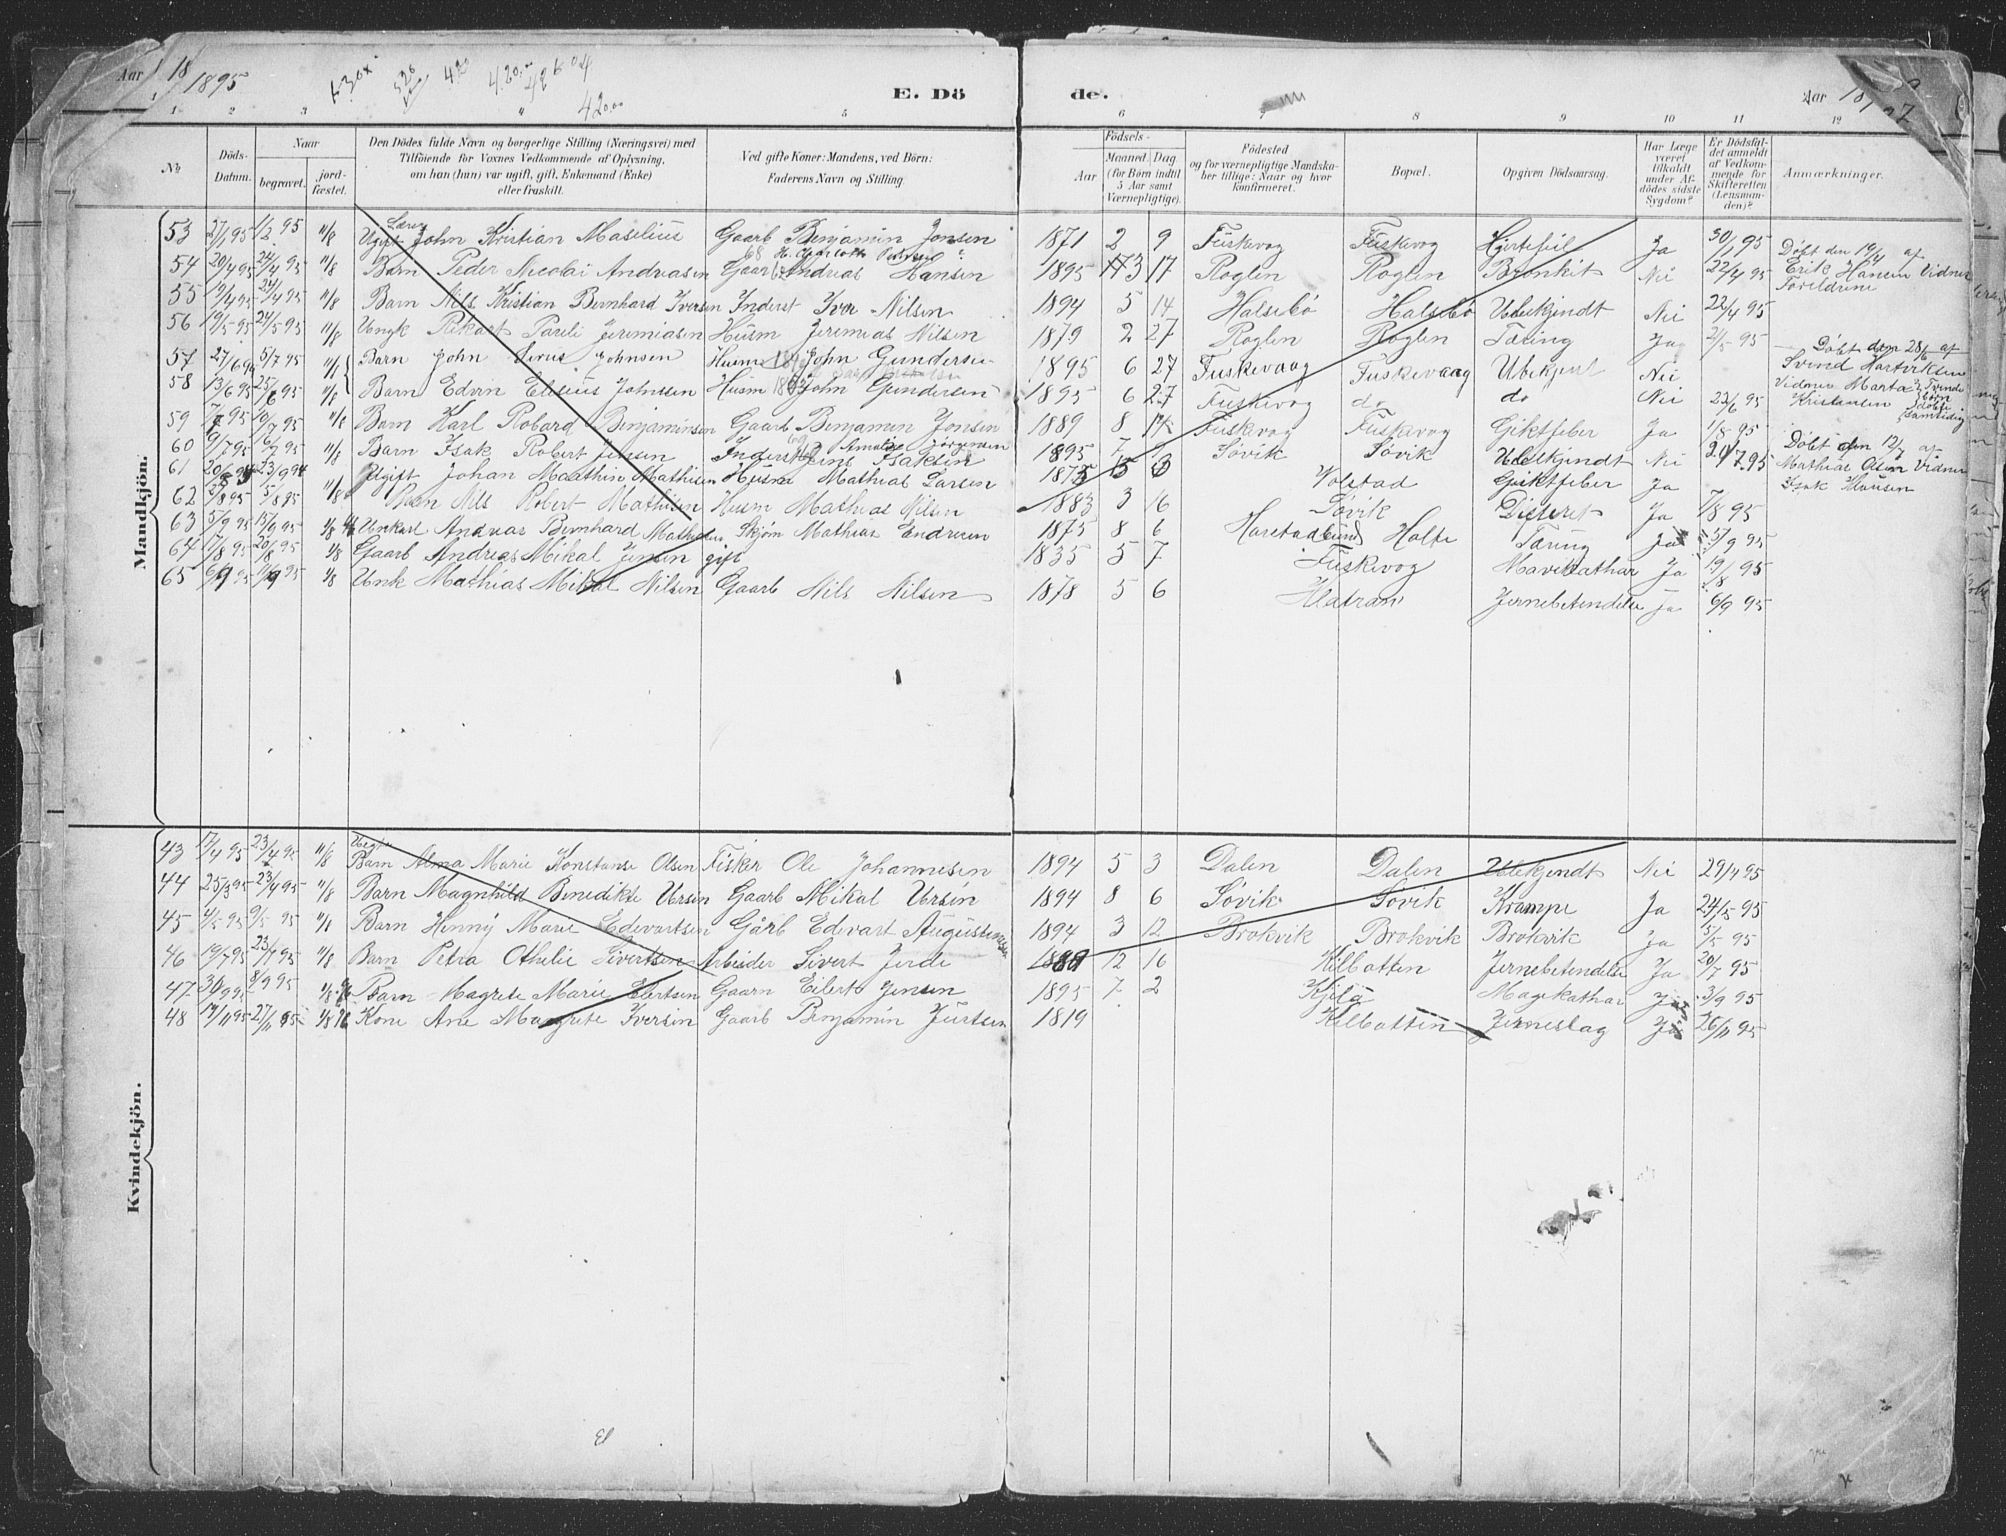 Aar 18
1895
420
42000
E. Dö de.
Aar 18
1 2 3 4 5 6 7 8 9 10 11 12
No
Döds-Datum.
Naar
begravet.
jord-fæstet.
Den Dödes fulde Navn og borgerlige Stilling (Næringsvei) med Tilföiende for Voxnes Vedkommende af Oplysning, om han (hun) var ugift, gift, Enkemand (Enke) eller fraskilt.
Ved gifte Koner: Mandens, ved Börn: Faderens Navn og Stilling.
Födsels-
Aar
Maaned. Dag
(for Börn indtil 5 Aar samt Værnepligtige).
Födested og for værnepligtige Mandskaber tillige: Naar og hvor konfirmeret.
Bopæl.
Opgiven Dödsaarsag.
Har Læge været tilkaldt under Afdödes sidste Sygdom?
Er Dödsfaldet anmeldt af Vedkommende for Skifteretten (Lensmanden)?
Anmærkninger.
Mandkjön.
53 27/1 95 1/2 95 11/8 Ugift John Kristian Maselius Gaarb Benjamin Jonsen 1871 2 9 Fuskevog Fuskevog Hjertefeil Ja 30/1 95
54 20/4 95 24/4 95 11/8 Barn Peder Nicolai Andreasen Gaarb Andreas Hansen 1895 3 17 Roglen Roglen Bronkit Nei 22/4 95 Döbt den 19/4 af Erik Hansen Vidner Foreldrene
55 19/4 95 24/4 95 11/8 Barn Nils Kristian Bernhard Iversen Inderst Iver Nilsen 1894 5 14 Halsebö Halsebö Ubekjendt Nei 22/4 95
56 19/5 95 24/5 95 11/8 Ungk Rikart Pareli Jeremiasen Husm Jeremias Nilsen 1879 2 27 Roglen Roglen Tæring Ja 21/5 95
57 27/6 5/7 95 Barn John Sirus Johnsen Husm John Gundersen 1895 6 27 Fuskevaag Fuskevaag Ubekjent Nei Döbt den 28/6 af Sivend Hartviksen
58 13/6 95 25/6 95 11/8 Barn Edvin Eliseus Johnsen Husm John Gundersen 1895 6 27 Fuskevog do do Nei 23/6 95 Vidner Marta Kristensen
59 7/7 95 10/7 95 11/8 Barn Karl Robard Benjaminsen Gaarb Benjamin Jonsen 1889 8 14 Fuskevog Fuskevog Giktfeber Ja 1/8 95
60 9/7 95 16/7 95 11/8 Barn Isak Robert Jensen Inderst Jens Isaksen 1895 7 1 Sövik Sövik Ubekjendt Nei 20/7 95 Döbt den 12/7 af Mathias Olsen Vidner Isak Hansen
61 23/9 94 Ugift Johan Mathin Mathisen Husm Mathias Larsen 1875 5 3 Volstad Giktfeber Ja
62 5/8 95 11/8 Barn Nils Robert Mathisen Husm Mathias Nilsen 1883 3 16 Sövik Ja 7/8 95
63 5/9 95 15/9 95 Unkarl Andreas Bernhard Skjøm Mathias Endresen 1875 8 6 Harstadsund Holte Tæring Ja 3/9 95
64 7/8 95 20/8 95 1/8 Gaarb Andreas Mikal Jensen gift 1835 5 7 Fuskevog Mavekathar Ja 19/8 95
65 6/9 95 11/9 95 1/8 Unk Mathias Mikal Nilsen Gaarb Nils Nilsen 1878 5 6 Hlatran Jernebetendelse Ja 6/9 95
Kvindekjön.
43 17/4 95 23/4 95 11/8 Barn Alma Marie Konstanse Olsen Fisker Ole Johannesen 1894 5 3 Dalen Dalen Ubekjendt Nei 29/4 95
44 25/3 95 23/4 95 11/8 Barn Magnhild Benedikte Ursin Gaarb Mikal Ursin 1894 8 6 Sövik Sövik Krampe Ja 24/5 95
45 4/5 95 9/5 95 11/8 Barn Henny Marie Edevartsen Gårb Edevart Augustinussen 1894 3 12 Brokvik Brokvik Brokvik Ja 5/5 95
46 19/7 95 23/7 95 11/8 Barn Petra Othilie Sivertsen Arbeider Sivert Jerde 1889 12 16 Kilbotten Jernebetendelse Ja 20/7 95
47 20/9 95 8/9 95 Barn Magrete Marie Eilertsen Gaarn Eilert Jensen 1895 7 2 Kjila Magekathar Ja 3/9 95
48 19/11 95 27/11 95 Kone Ane Magrete Iversen Gaarb Benjamin Jürtsen 1819 Kilbotten Jerneslag Ja 26/11 95